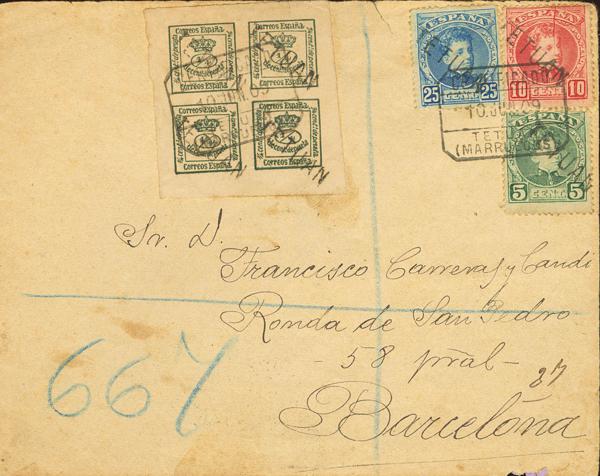 Correos España Correos España
Correos España Correos España
Correos España Correos España
Correos España Correos España
ESPAÑA
25 CENT. 25
ESPAÑA
10 CENT. 10
ESPAÑA
5 CENT. 5
TETUAN
TETUAN
TETUAN
CERTIFICADO
10.JUN.09
TETUAN
(MARRUECOS)
Sr. D.
Francisco Carreras y Candi
Ronda de San Pedro
- 58 pral -
27
Barcelona
667